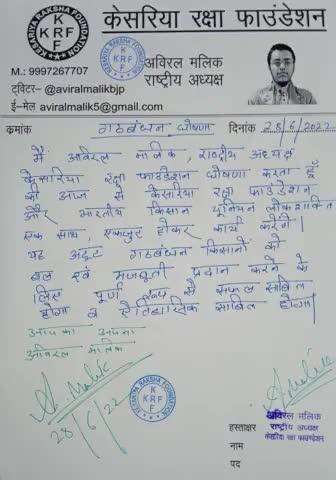 KESARIYA RAKSHA FOUNDATION
KRF
केसरिया रक्षा फाउंडेशन
अविरल मलिक
राष्ट्रीय अध्यक्ष
M.: 9997267707
ट्विटर– @aviralmalikbjp
ई–मेल aviralmalik5@gmail.com
क्रमांक
गठबंधन घोषणा
दिनांक 28/6/2022
मैं अविरल मलिक, राष्ट्रीय अध्यक्ष
केसरिया रक्षा फाउंडेशन घोषणा करता हूँ
की आज से केसरिया रक्षा फाउंडेशन
और भारतीय किसान यूनियन लोकशक्ति
एक साथ, एकजुट होकर कार्य करेगी।
यह अटूट गठबंधन किसानों को
बल एवं मजबूती प्रदान करने के
लिए पूर्ण रूप से सफल साबित
होगा व ऐतिहासिक साबित होगा।
आपका अपना
अविरल मलिक
A. Malik
28/6/22
KESARIYA RAKSHA FOUNDATION
KRF
अविरल मलिक
हस्ताक्षर राष्ट्रीय अध्यक्ष
केसरिया रक्षा फाउन्डेशन
नाम
पद